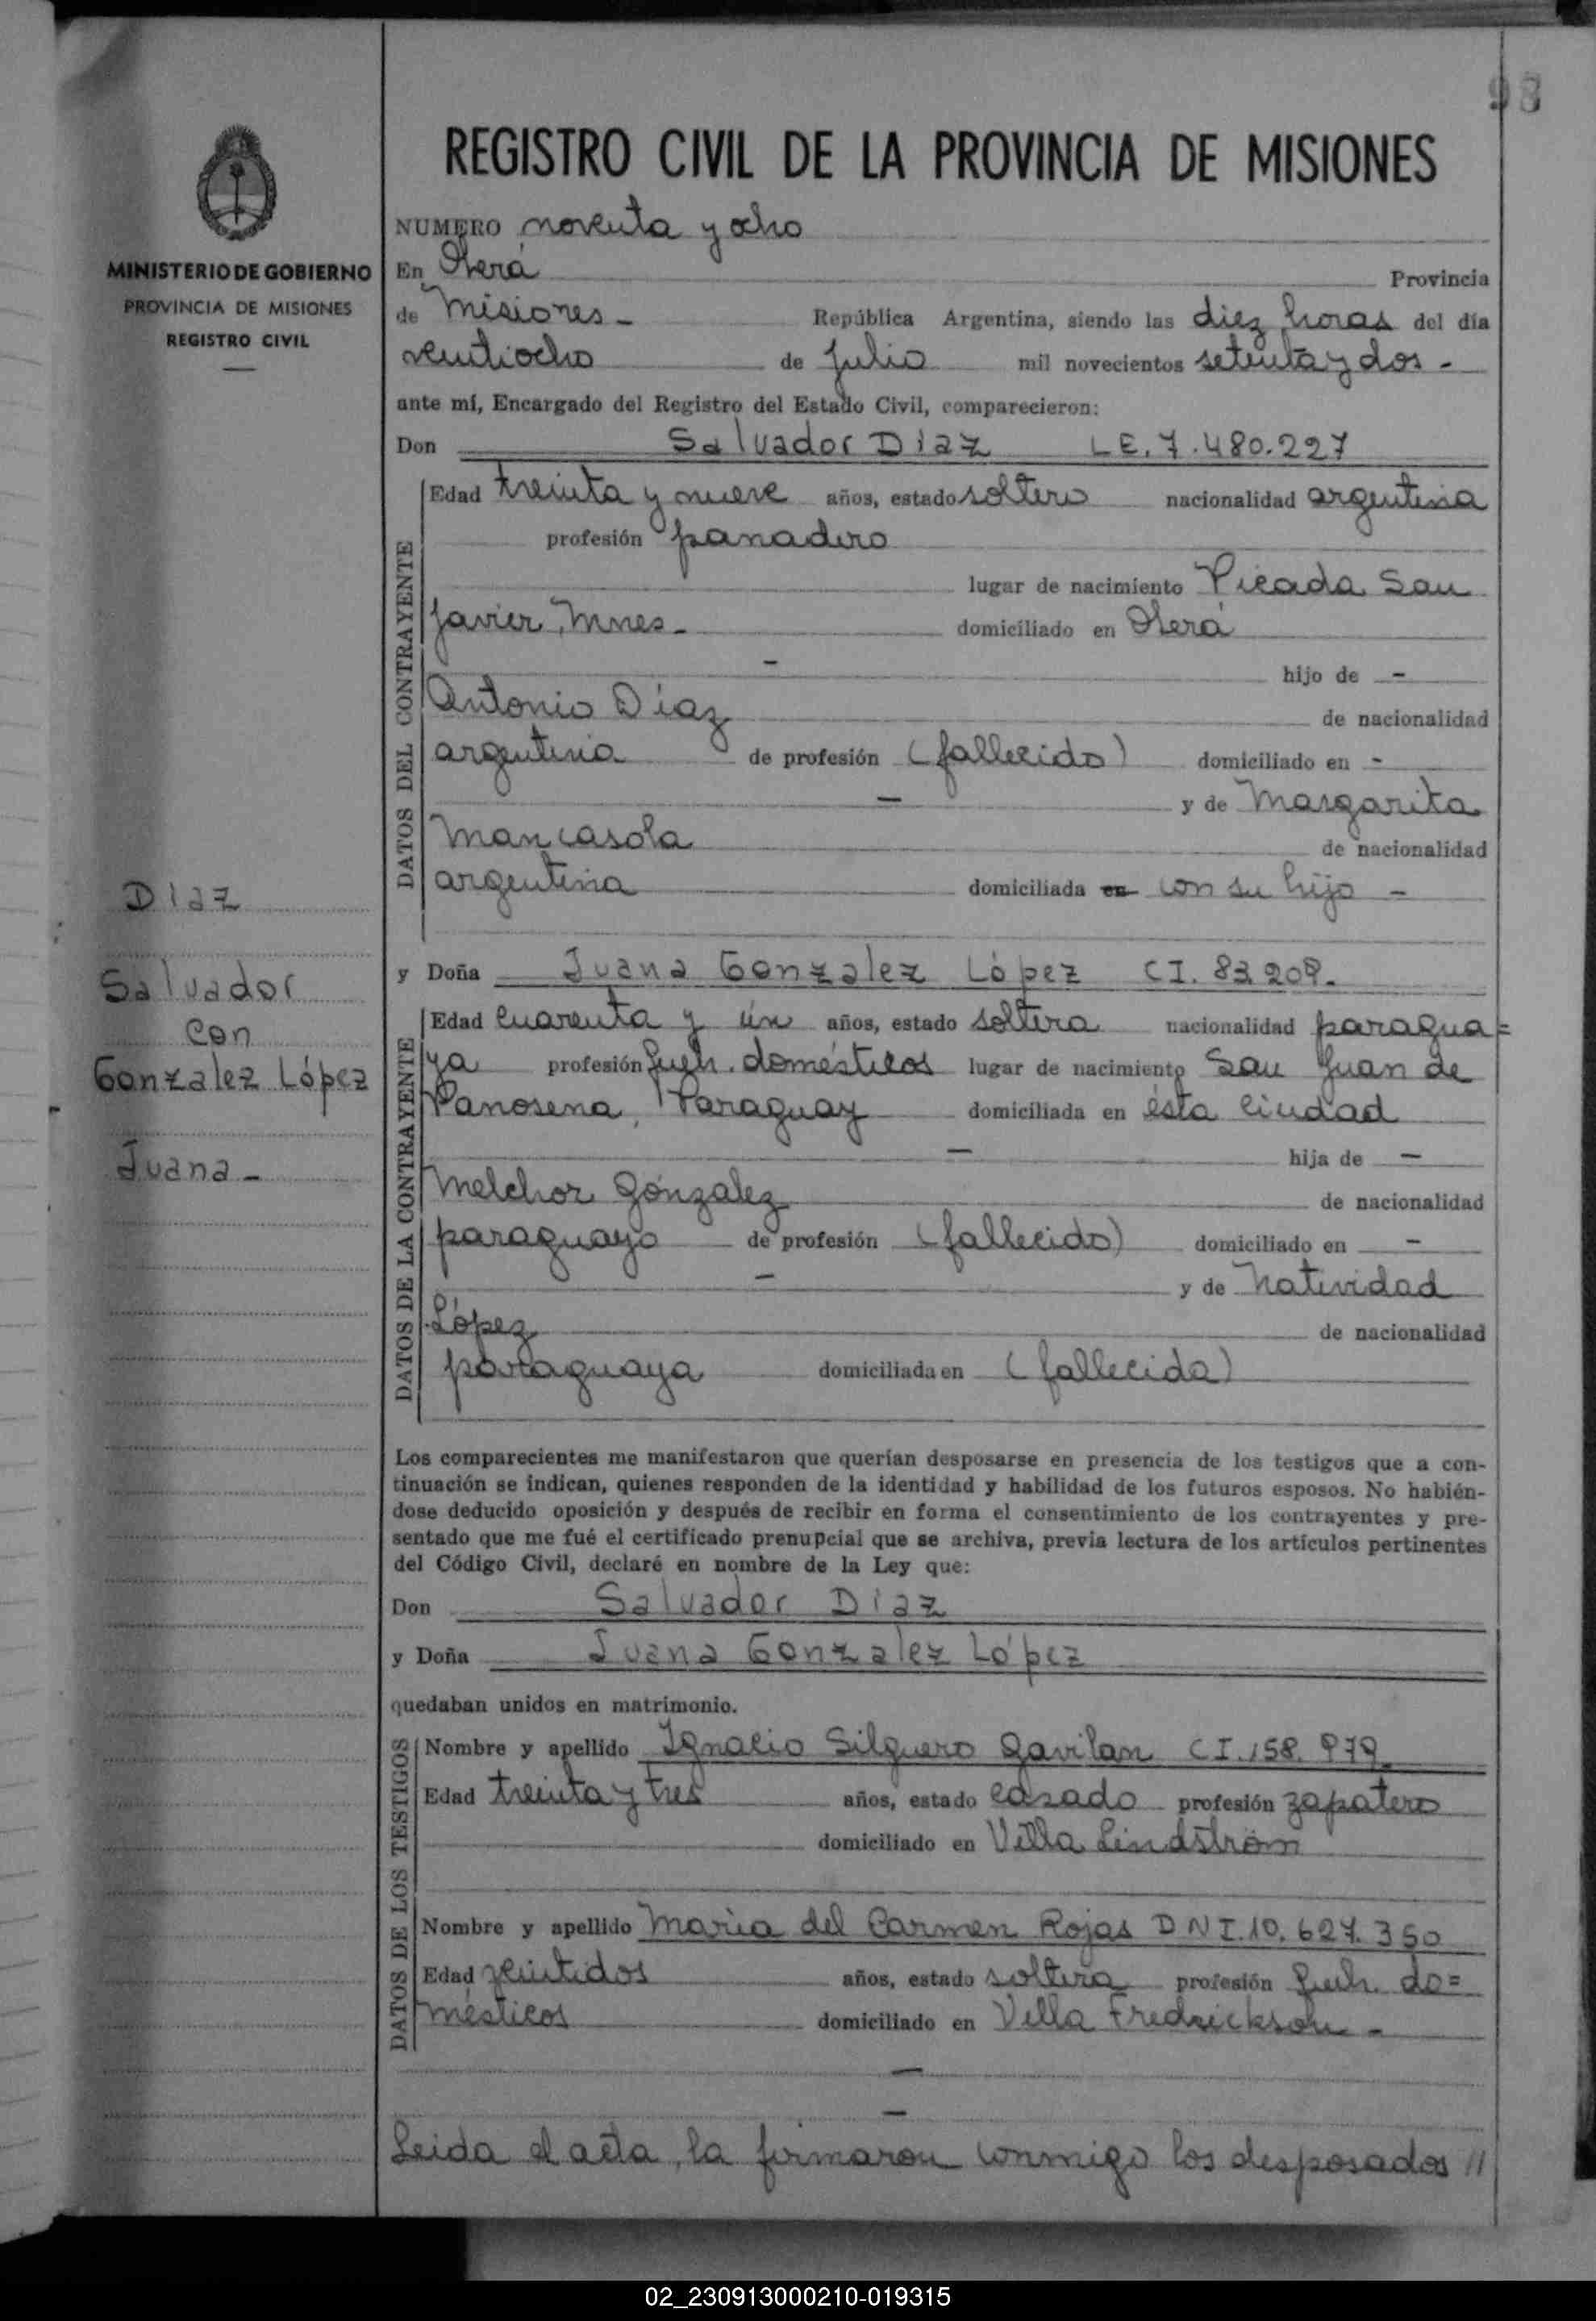 98
REGISTRO CIVIL DE LA PROVINCIA DE MISIONES
MINISTERIO DE GOBIERNO
PROVINCIA DE MISIONES
REGISTRO CIVIL
NUMERO noventa y ocho
En Oberá Provincia
de Misiones - República Argentina, siendo las diez horas del día
veintiocho de julio mil novecientos setenta y dos -
ante mí, Encargado del Registro del Estado Civil, comparecieron:
Don Salvador Diaz LE. 7.480.227
DATOS DEL CONTRAYENTE
Edad treinta y nueve años, estado soltero nacionalidad argentina
profesión panadero
lugar de nacimiento Picada San
Javier, Mnes - domiciliado en Oberá
- hijo de -
Antonio Díaz de nacionalidad
argentina de profesión (fallecido) domiciliado en -
- y de Margarita
Mancasola de nacionalidad
argentina domiciliada en con su hijo -
y Doña Juana Gonzalez López CI. 83.209.-
DATOS DE LA CONTRAYENTE
Edad cuarenta y ún años, estado soltera nacionalidad paragua=
ya profesión queh. domésticos lugar de nacimiento San Juan de
Panosena, Paraguay domiciliada en ésta ciudad
- hija de -
Melchor González de nacionalidad
paraguayo de profesión (fallecido) domiciliado en -
- y de Natividad
López de nacionalidad
paraguaya domiciliada en (fallecida)
Diaz
Salvador
con
Gonzalez López
Juana -
Los comparecientes me manifestaron que querían desposarse en presencia de los testigos que a con-
tinuación se indican, quienes responden de la identidad y habilidad de los futuros esposos. No habién-
dose deducido oposición y después de recibir en forma el consentimiento de los contrayentes y pre-
sentado que me fué el certificado prenupcial que se archiva, previa lectura de los artículos pertinentes
del Código Civil, declaré en nombre de la Ley que:
Don Salvador Diaz
y Doña Juana Gonzalez López
quedaban unidos en matrimonio.
DATOS DE LOS TESTIGOS
Nombre y apellido Ignacio Silguero Gavilan CI. 158.979
Edad treinta y tres años, estado casado profesión zapatero
domiciliado en Villa Lindström
Nombre y apellido María del Carmen Rojas DNI. 10.627.350
Edad veintidos años, estado soltera profesión queh. do=
mésticos domiciliado en Villa Fredrickson -
-
-
Leida el acta, la firmaron conmigo los desposados //
02_230913000210-019315